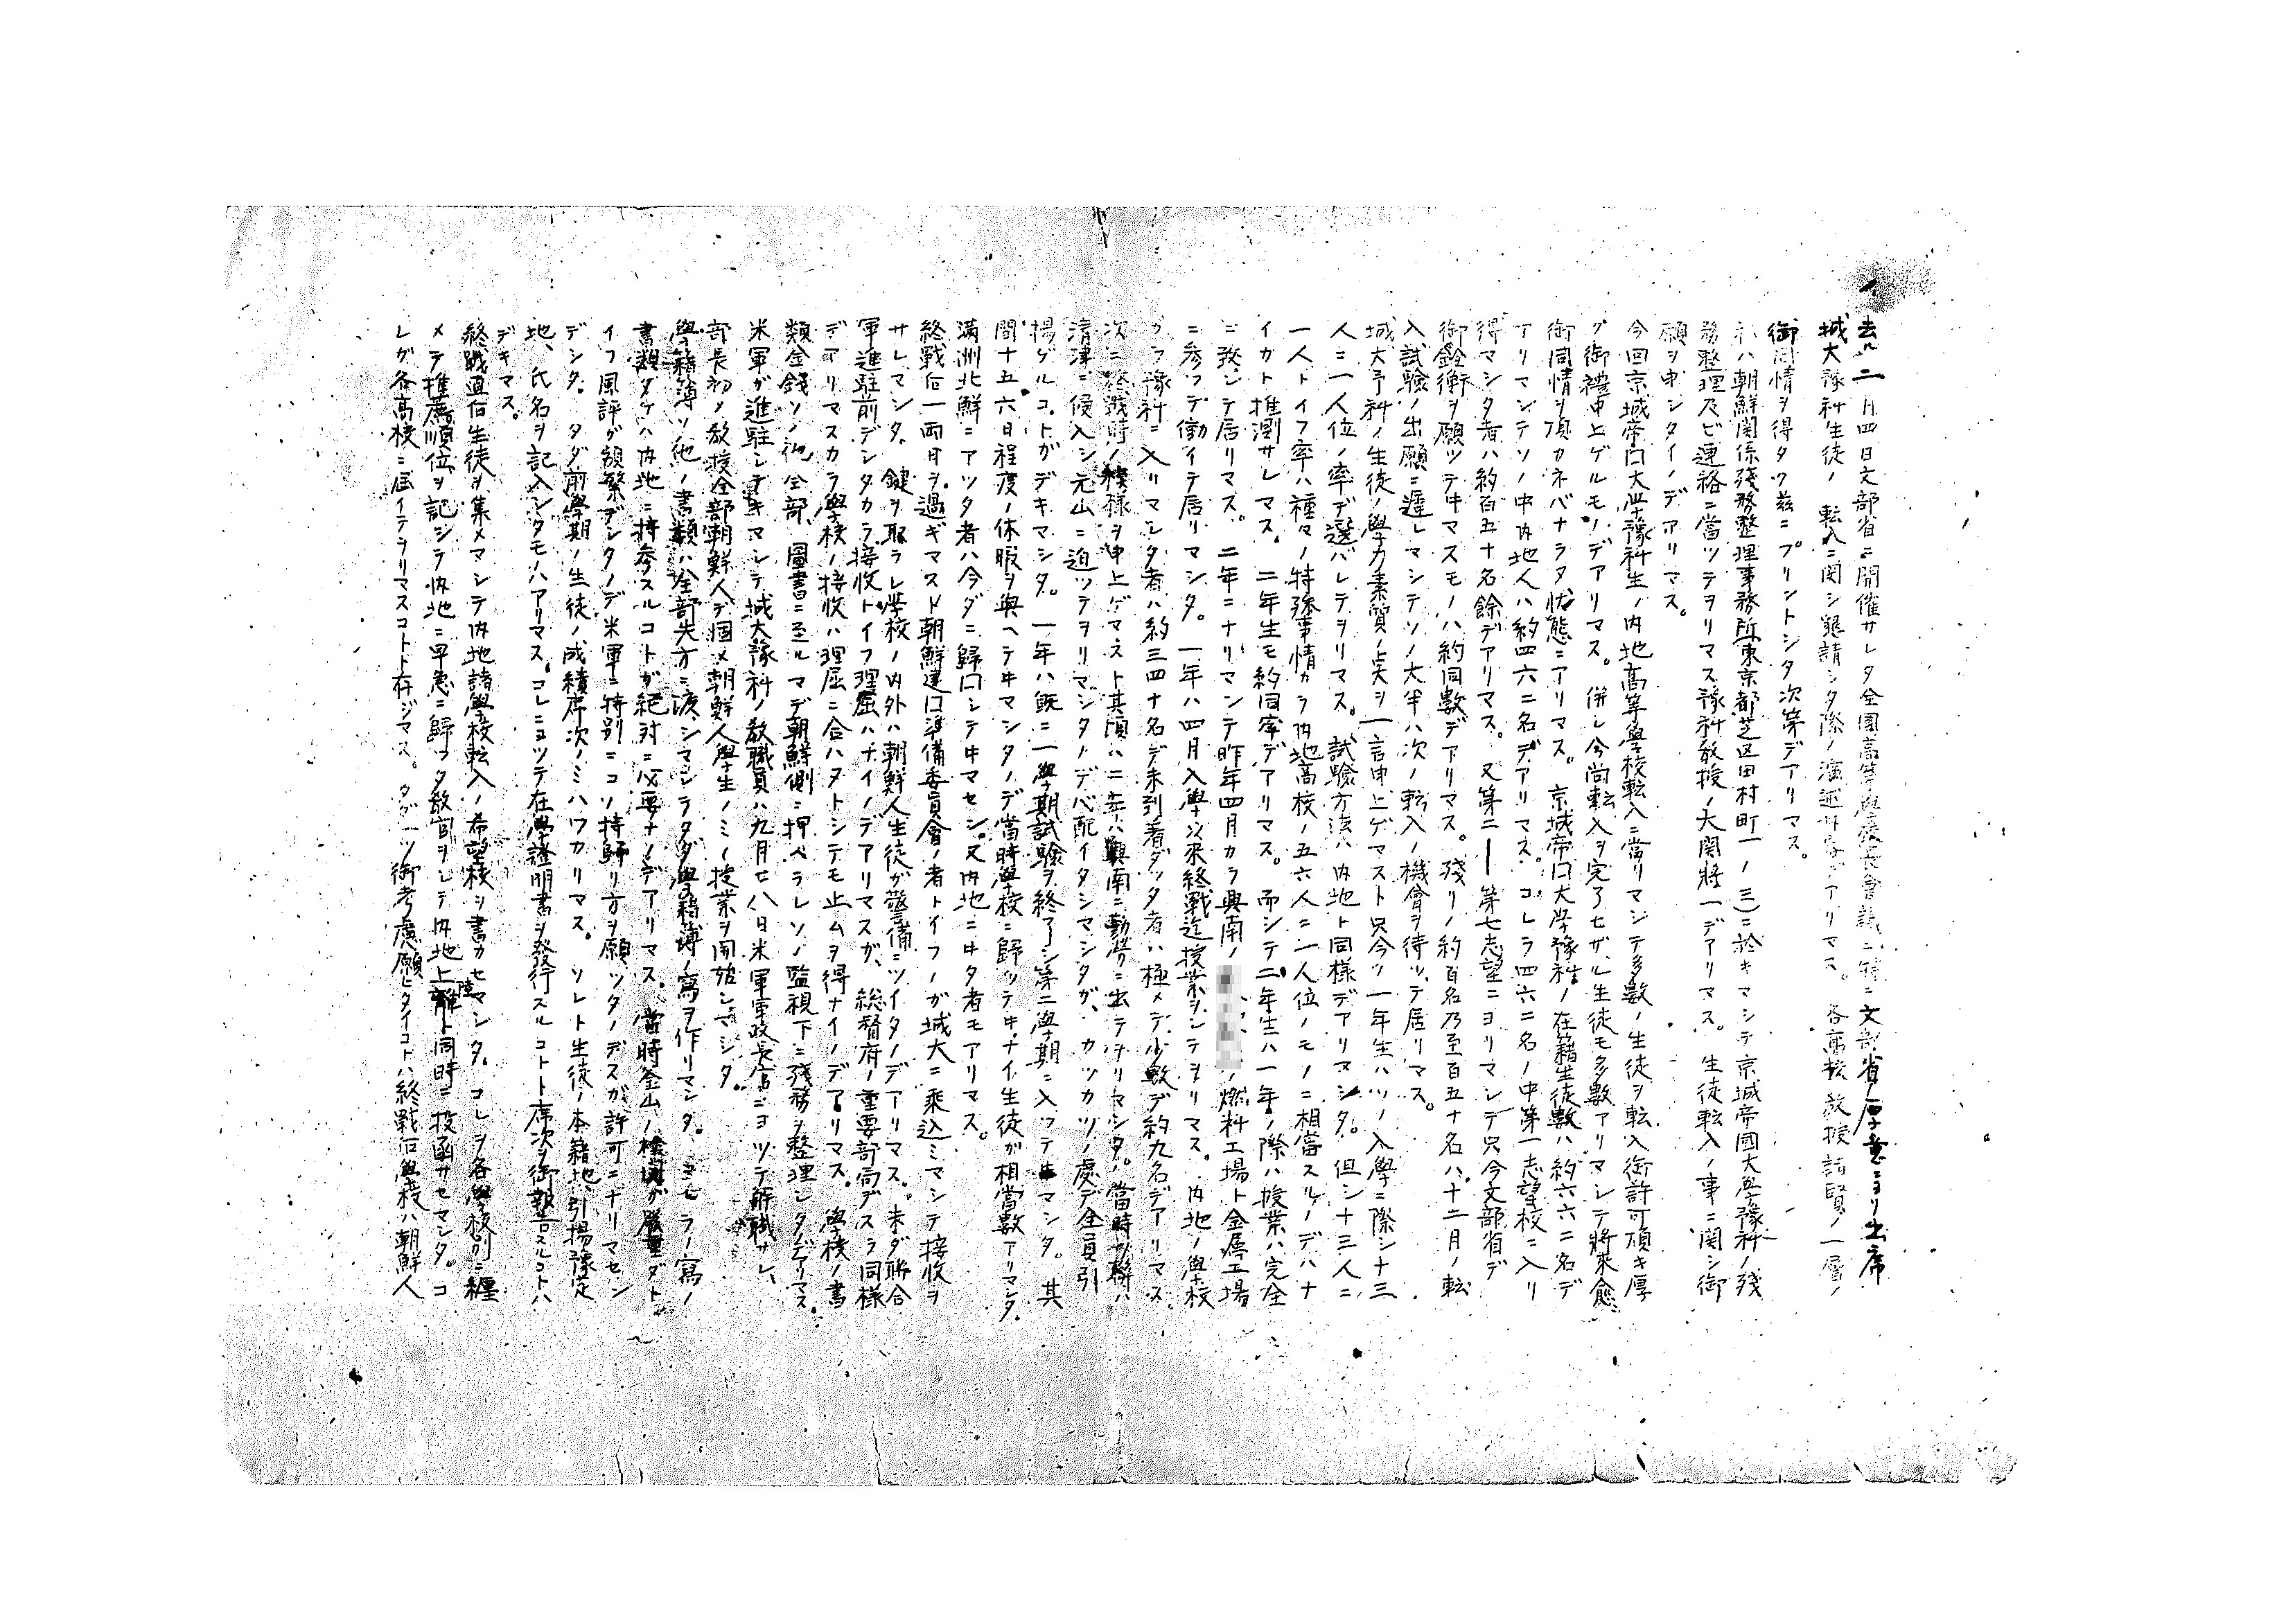 去ル二月四日文部省ニ開催サレタ全國高等學校長會議ニ特ニ文部省ノ厚意ニヨリ出席
城大豫科生徒ノ転入ニ関シ懇請シタ際ノ演述内容デアリマス。各高校教授諸賢ノ一層ノ
御同情ヲ得タク茲ニプリントシタ次第デアリマス。
私ハ朝鮮関係残務整理事務所(東京都芝区田村町一ノ三)ニ於キマシテ京城帝國大學豫科ノ残
務整理及ビ連絡ニ當ツテヲリマス豫科教授ノ大関將一デアリマス。生徒転入ノ事ニ関シ御
願ヲ申シタイノデアリマス。
今回京城帝口大学豫科生ノ内地高等學校転入ニ當リマシテ多数ノ生徒ヲ転入御許可頂キ厚
ク御禮申上ゲルモノデアリマス。併シ今尚転入ヲ完了セザル生徒モ多数アリマシテ將來愈
御同情ヲ頂カネバナラヌ状態ニアリマス。京城帝口大学豫科ノ在籍生徒數ハ約六六二名デ
アリマシテソノ中内地人ハ約四六二名デアリマス。コレラ四六二名ノ中第一志望校ニ入リ
得マシタ者ハ約百五十名餘デアリマス。又第二―第七志望ニヨリマシテ只今文部省デ
御銓衡ヲ願ツテ中マスモノハ約同數デアリマス。残リノ約百名乃至百五十名ハ十二月ノ転
入試験ノ出願ニ遲レマシテソノ大半ハ次ノ転入ノ機會ヲ待ツテ居リマス。
城大予科ノ生徒ノ學力素質ノ点ヲ一言申上ゲマスト只今ノ一年生ハソノ入學ニ際シ十三
人ニ一人位ノ率デ選バレテヲリマス。試験方法ハ内地ト同様デアリマシタ。但シ十三人ニ
一人トイフ率ハ種々ノ特殊事情カラ内地高校ノ五六人ニ一人位ノモノニ相當スルノデハナ
イカト推測サレマス。二年生モ約同率デアリマス。而シテ二年生ハ一年ノ際ハ授業ハ完全
ニ致シテ居リマス。二年ニナリマシテ昨年四月カラ興南ノ ノ燃料工場ト金属工場
ニ參ツテ働イテ居リマシタ。一年ハ四月入學以來終戰迄授業ヲシテヲリマス。内地ノ學校
カラ豫科ニ入リマシタ者ハ約三四十名デ未到着ダツタ者ハ極メテ少數デ約九名デアリマス
次ニ終戰時ノ模様ヲ申上ゲマスト其頃ハ二年ハ興南ニ勤労ニ出テ中リマシタ。當時ソ聯ハ
清津ニ侵入シ元山ニ迫ツテヲリマシタノデ心配イタシマシタガ、カツカツノ處デ全員引
揚ゲルコトガデキマシタ。一年ハ既ニ一學期試驗ヲ終了シ第二學期ニ入ツテ中マシタ。其
間十五六日程度ノ休暇ヲ與ヘテ中マシタノデ當時學校ニ歸ツテ中ナイ生徒ガ相當數アリマシタ。
満洲北鮮ニアツタ者ハ今ダニ歸口シテ中マセン。又内地ニ中タ者モアリマス。
終戰后一両日ヲ過ギマスト朝鮮建口準備委員會ノ者トイフノガ城大ニ乘込ミマシテ接收ヲ
サレマシタ。鍵ヲ取ラレ学校ノ内外ハ朝鮮人生徒ガ警備ニツイタノデアリマス。未ダ聯合
軍進駐前デシタカラ接收トイフ理屈ハナイノデアリマスガ、総督府ノ重要部局デスラ同様
デアリマスカラ學校ノ接收ハ理屈ニ合ハヌトシテモ止ムヲ得ナイノデアリマス。學校ノ書
類金錢ソノ他全部、圖書ニ至ルマデ朝鮮側ニ押ヘラレソノ監視下ニ残務ヲ整理シタノデアリマス。
米軍ガ進駐シテキマシテ城大豫科ノ教職員ハ九月七八日米軍軍政長官ニヨツテ解職サレ、
部長初メ教授全部朝鮮人デ固メ朝鮮人學生ノミノ授業ヲ開始シマシタ。
學籍簿ソノ他ノ書類ハ全部先方ニ渡シマシタタダ學籍簿ノ寫ヲ作リマシタ。コレラノ寫ノ
書類ダケハ内地ニ持參スルコトガ絶対ニ必要ナノデアリマス。當時釜山ノ檢閲ガ嚴重ダト
イフ風評ガ頻繁デシタノデ米軍ニ特別ニコソ持歸リ方ヲ願ツタノデスガ許可ニナリマセン
デシタ。タダ前學期ノ生徒ノ成績席次ノミハワカリマス。ソレト生徒ノ本籍地、引揚豫定
地、氏名ヲ記入シタモノハアリマス。コレニヨツテ在學證明書ヲ發行スルコトト席次ヲ御報告スルコトハ
デキマス。
終戰直后生徒ヲ集メマシテ内地諸學校転入ノ希望校ヲ書カセマシタ。コレヲ各學校別ニ纒
メテ推薦順位ヲ記シテ内地ニ早急ニ歸ツタ教官ヲシテ内地上陸ト同時ニ投函サセマシタ。コ
レガ各高校ニ屆イテヲリマスコトト存ジマス。タダ一ツ御考慮願ヒタイコトハ終戰后學校ハ朝鮮人